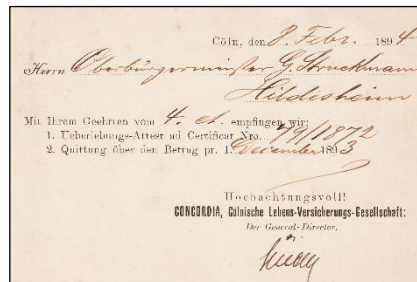 Cöln, den 8. Febr. 1894
Herrn Oberbürgermeister G. Struckmann
Hildesheim
Mit Ihrem Geehrten vom 4. ct. empfingen wir:
1. Ueberlebungs-Attest ad Certificat Nro. 79/1872
2. Quittung über den Betrag pr. 1. December 1893
Hochachtungsvoll!
CONCORDIA, Cölnische Lebens-Versicherungs-Gesellschaft:
Der General-Director.